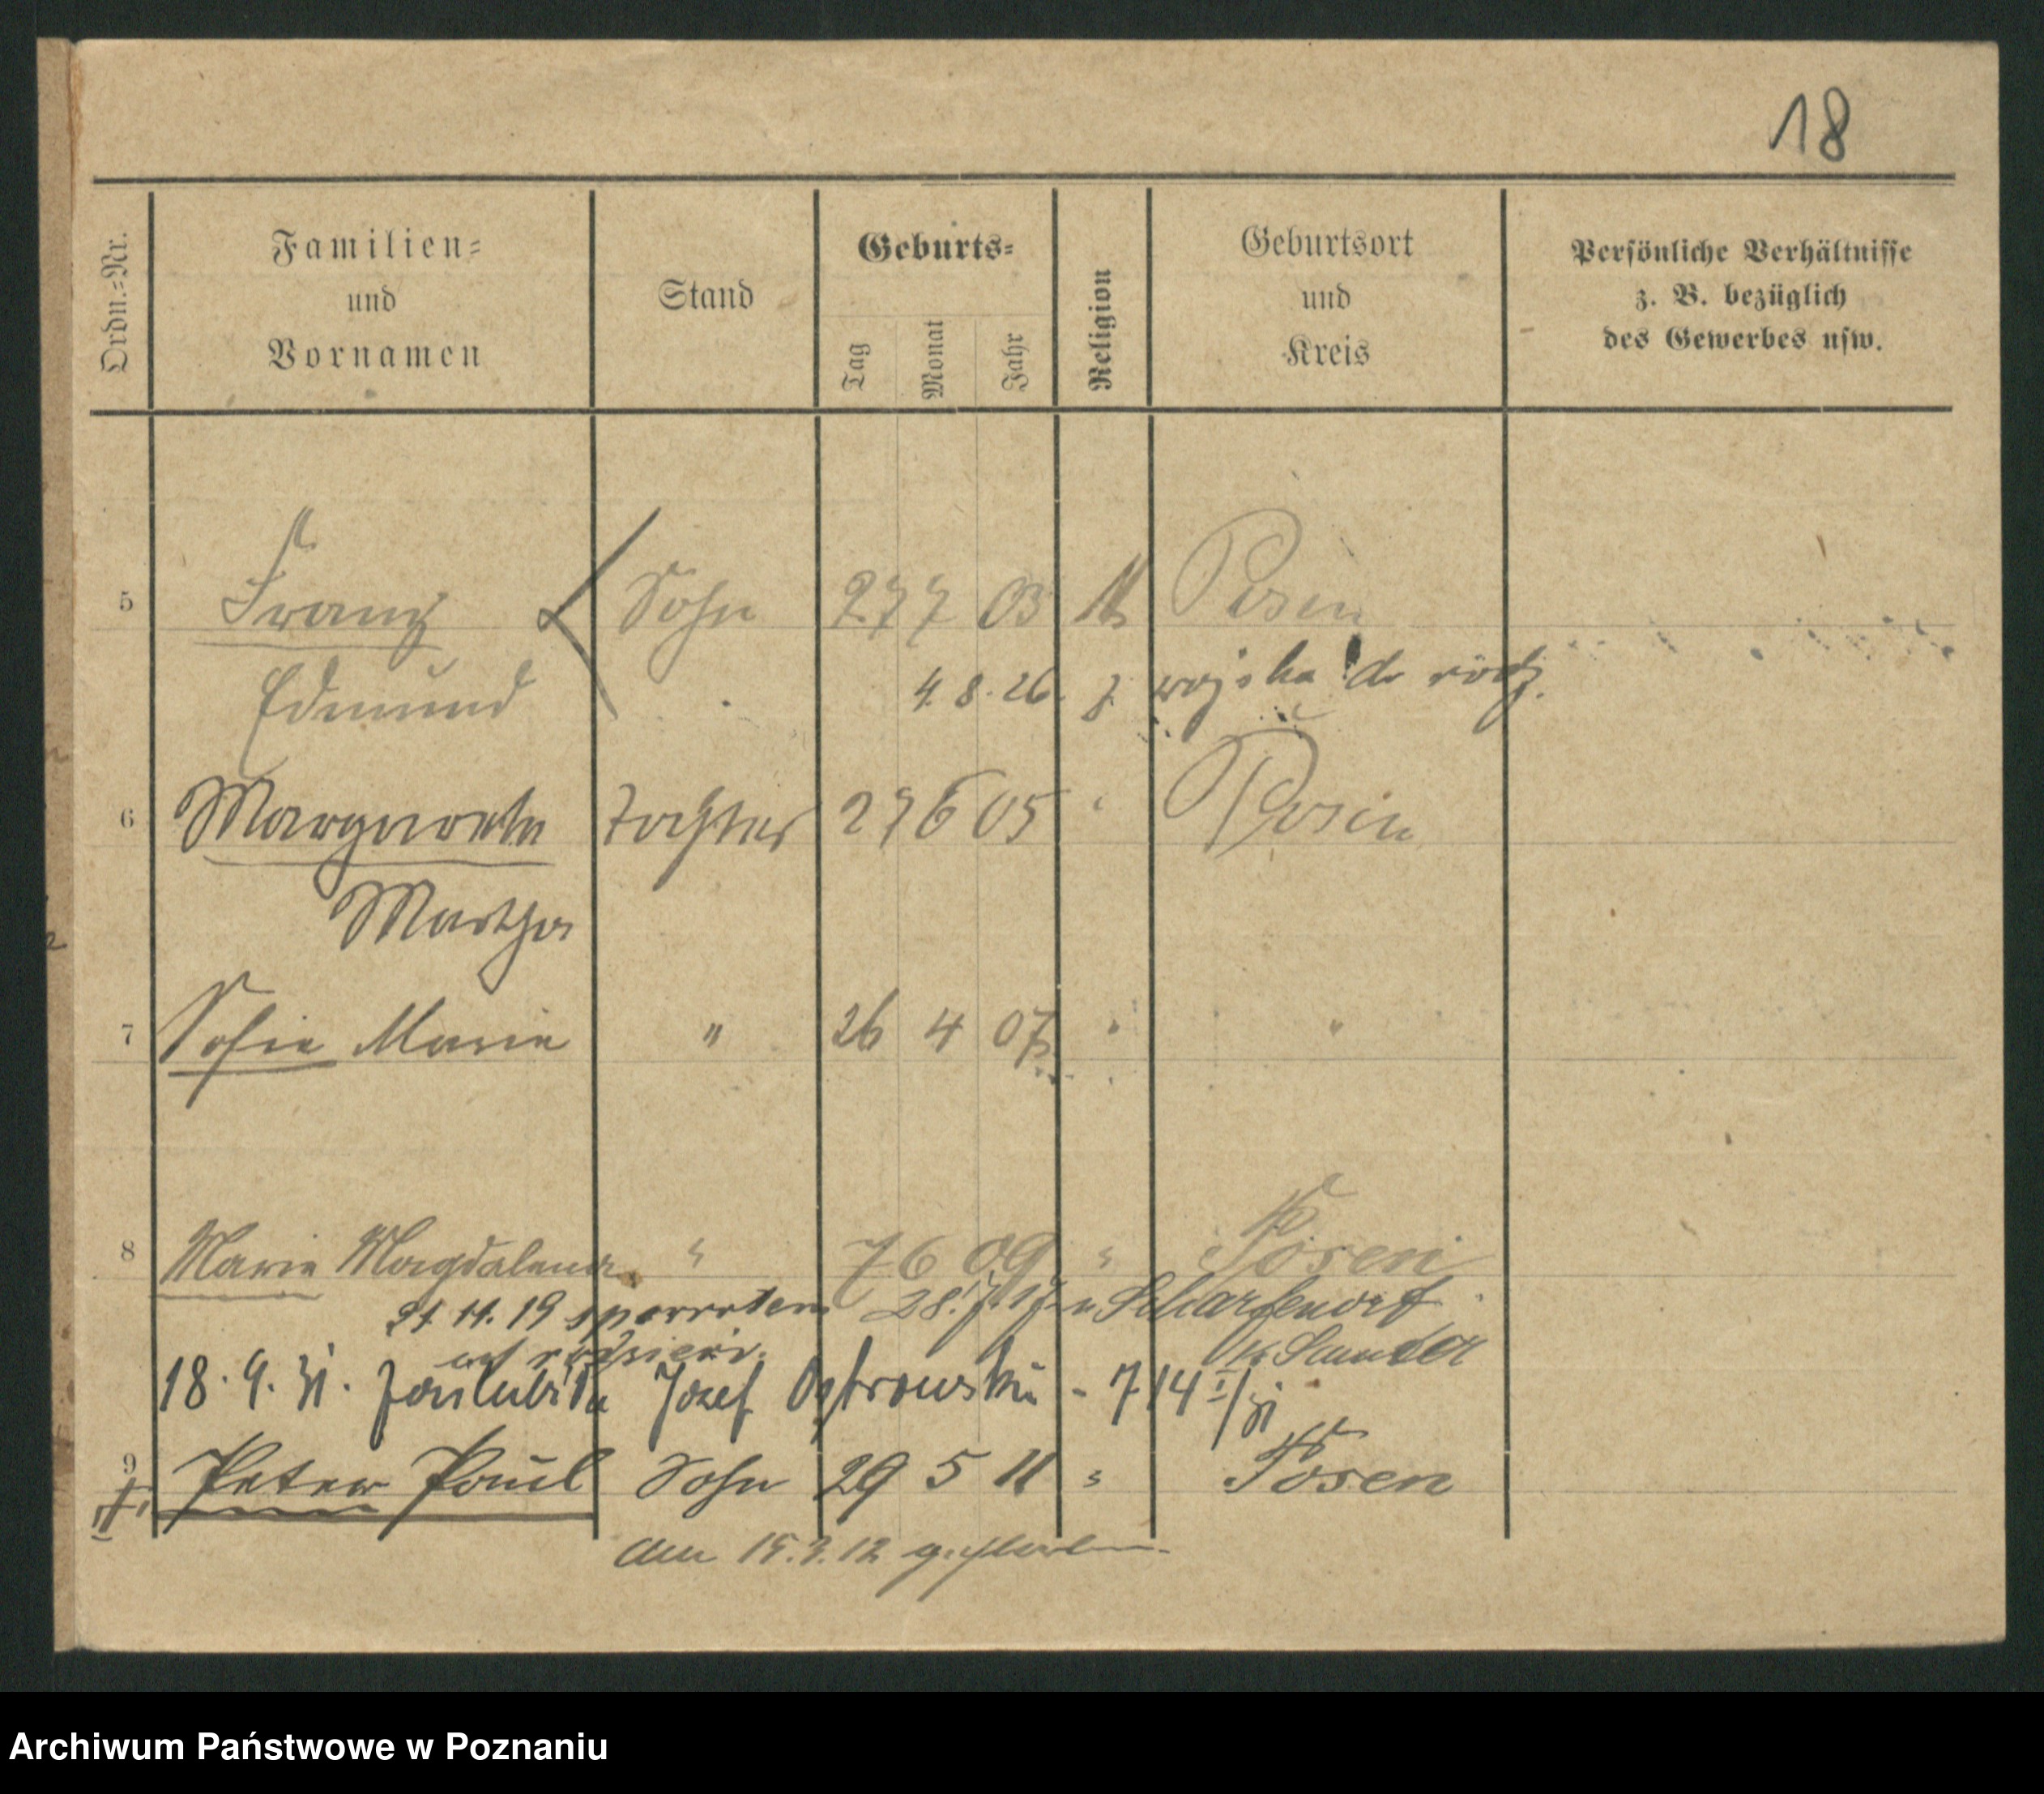 18
Ordn.=Nr.
Familien=
und
Vornamen
Stand
Geburts=
Tag Monat Jahr
Religion
Geburtsort
und
Kreis
Persönliche Verhältnisse
z. B. bezüglich
des Gewerbes usw.
5 Franz Sohn 27 7 03 Posen
Edmund 4. 8. 26. z wojska do rodz.
6 Margarethe Tochter 27 6 05 " Posen
Martha
7 Sofie Marie " 26 4 07 " "
8 Marie Magdalena " 7 6 09 " Posen
21. 11. 19 28. 7. 17 n Scharfenort
K Samter
18. 9. 31. zaślubiła Józef Ostrowski - 714 I/31
9 Peter Paul Sohn 29 5 11 " Posen
Am 15. 3. 12 gestorben.
Archiwum Państwowe w Poznaniu